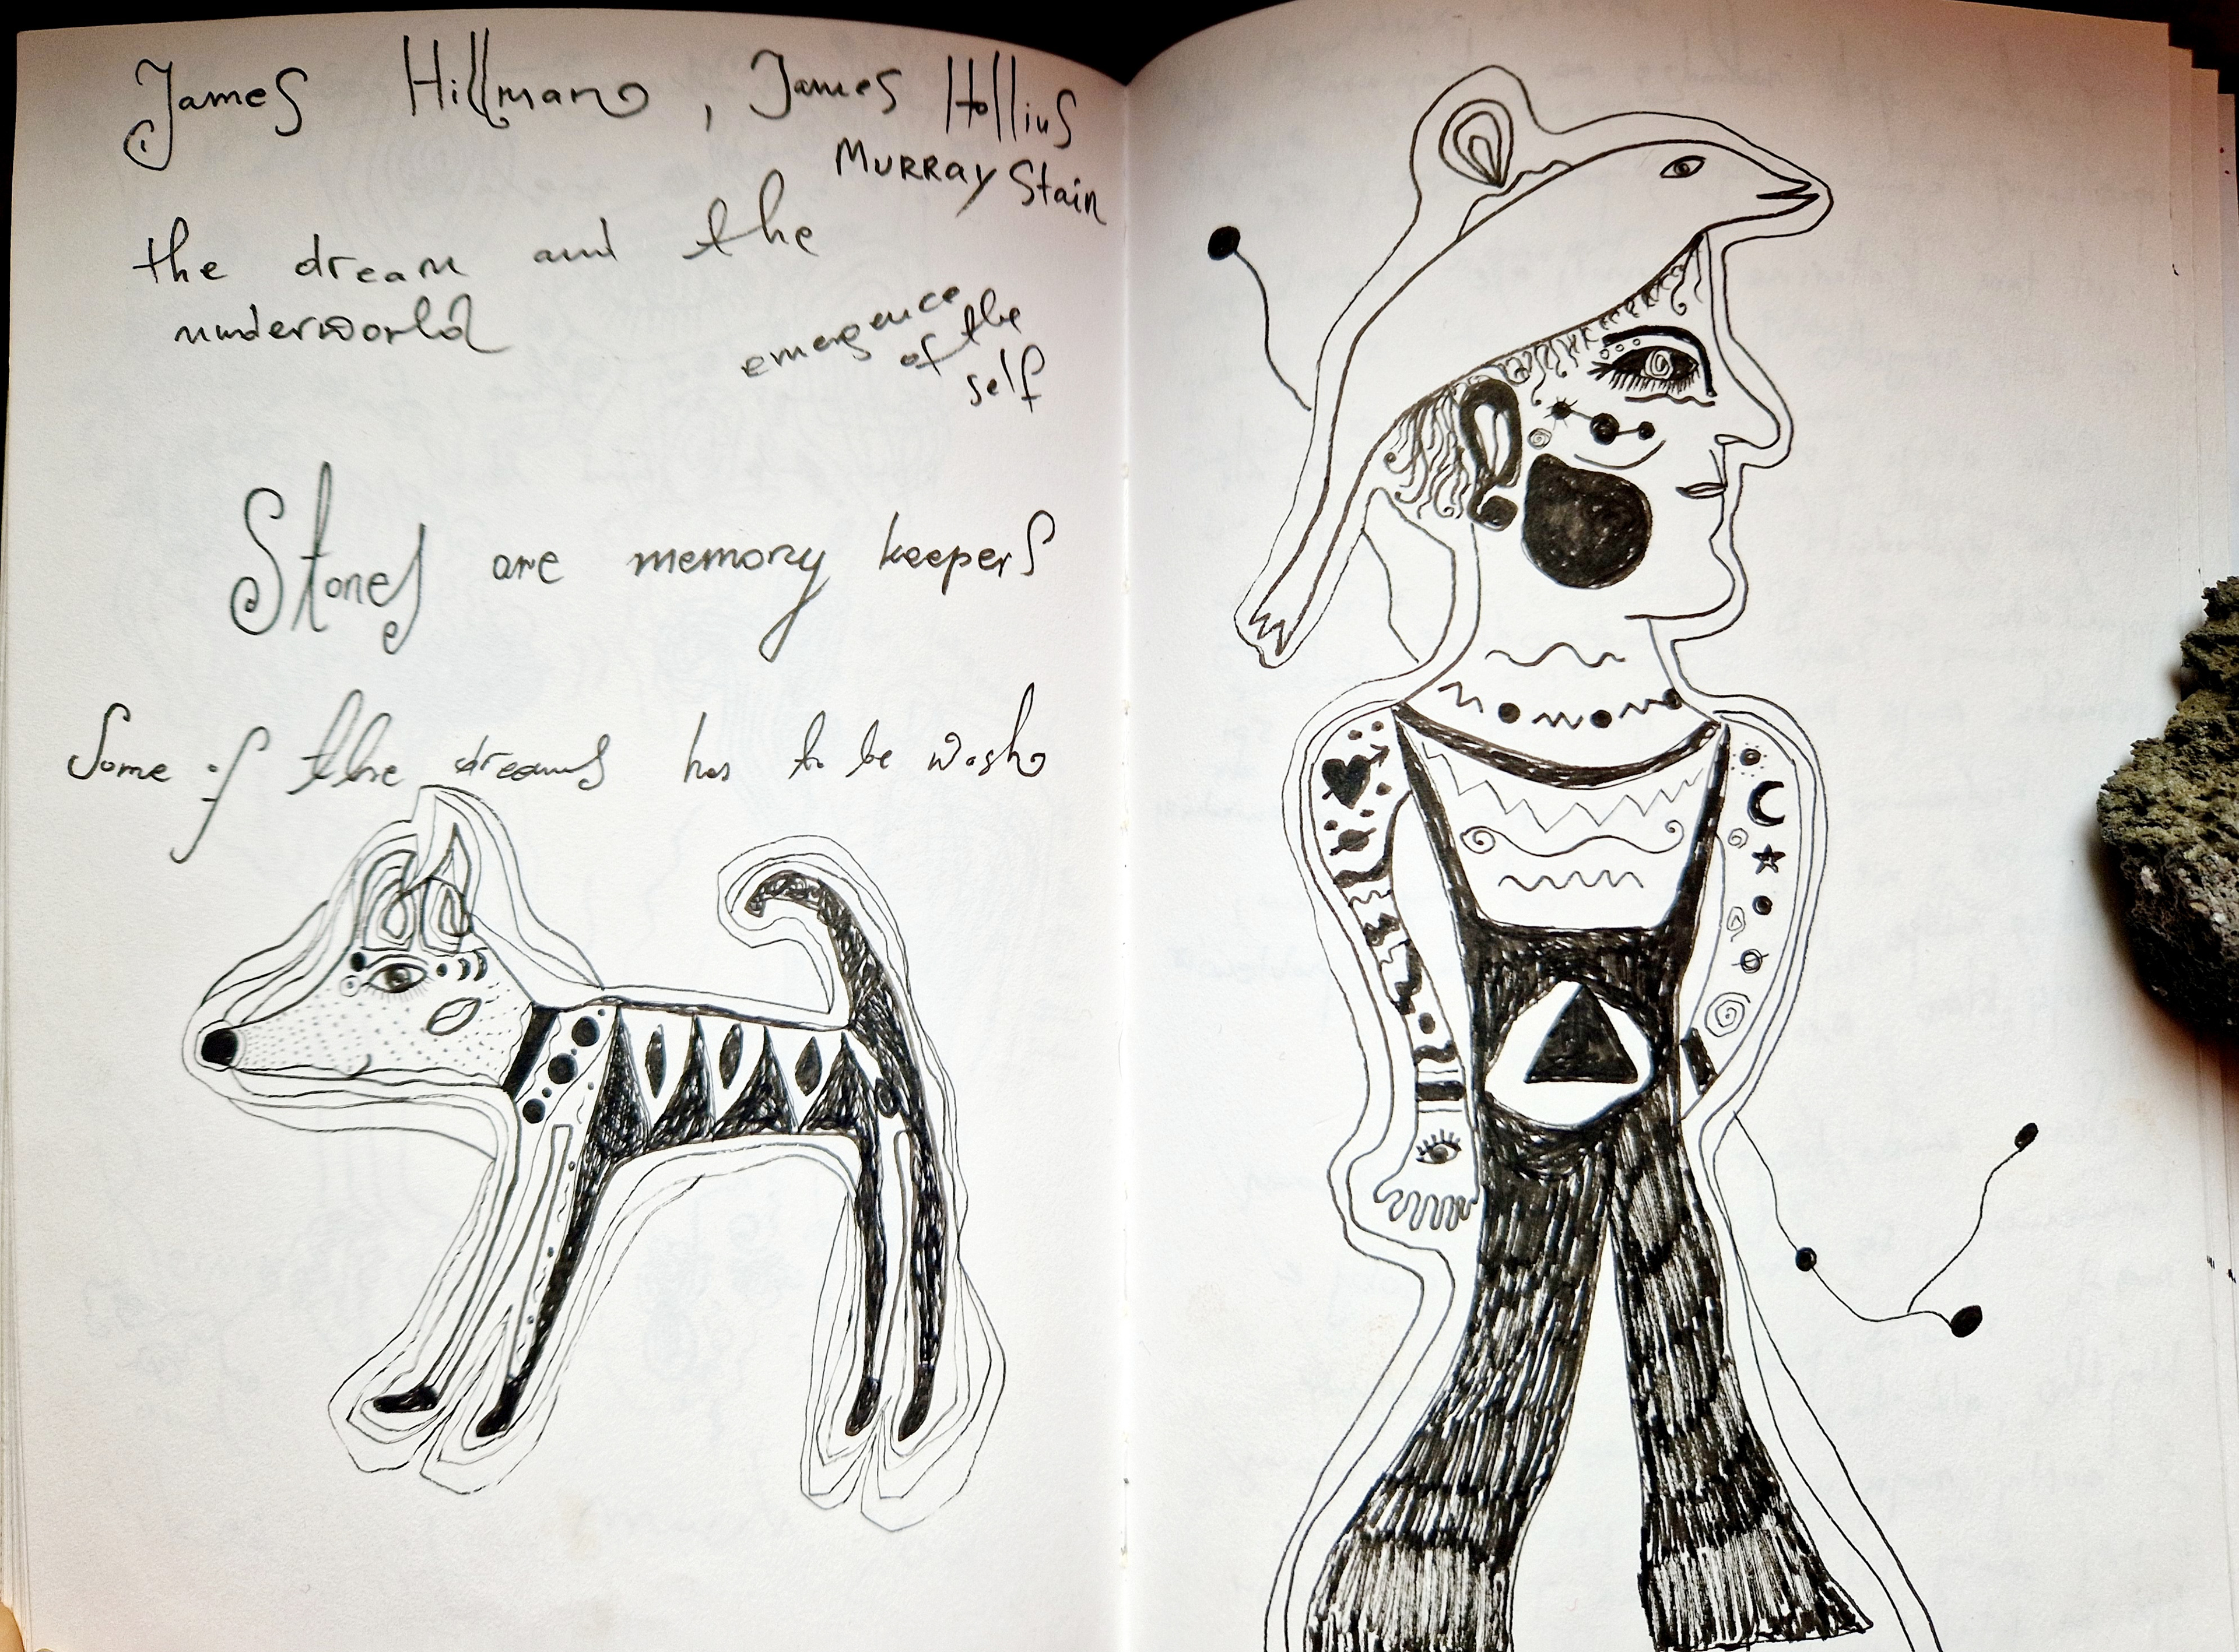 James Hillman, James Hollis
Murray Stain
the dream and the
underworld
emergence
of the
self
Stones are memory keepers
Some of the dreams has to be wash